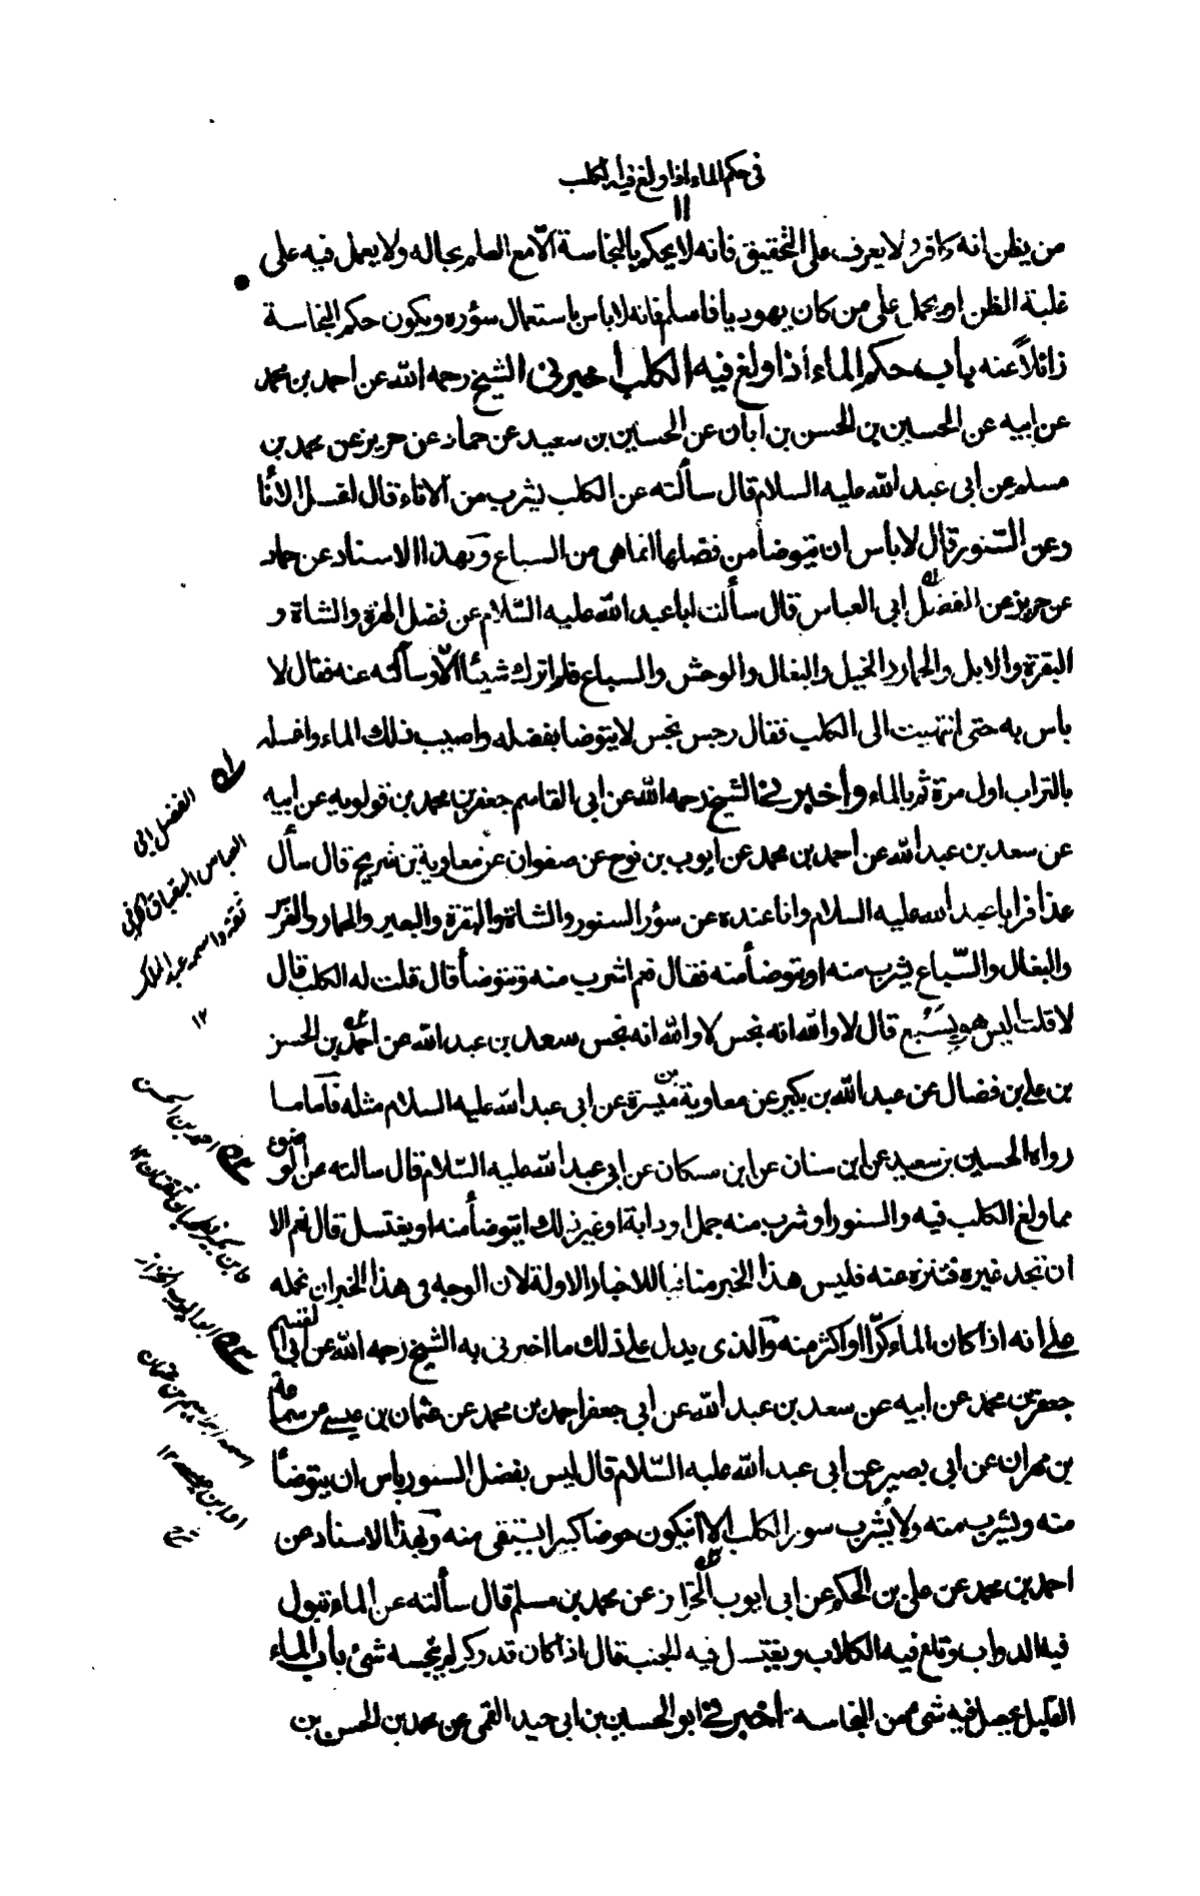 فى حكم الماء اذا ولغ فيه الكلب
١١
من يظن انه كافر ولا يعرف على التحقيق فانه لا يحكم بالنجاسة الّا مع العلم بحاله ولا يعمل فيه على
غلبة الظن او يحمل على من كان يهوديا فاسلم فانه لا باس باستعمال سؤره ويكون حكم النجاسة
زائلاً عنه باب حكم الماء اذا ولغ فيه الكلب أخبرنى الشيخ رحمه الله عن احمد بن محمد
عن ابيه عن الحسين بن الحسن بن ابان عن الحسين بن سعيد عن حماد عن حريز عن محمد بن
مسلم عن ابى عبد الله عليه السلام قال سألته عن الكلب يشرب من الاناء قال اغسل الانا
وعن السّنور قال لا باس ان تتوضأ من فضلها انما هى من السباع وبهذا الاسناد عن حماد
عن حريز عن الفضل ابى العباس قال سألت ابا عبد الله عليه السّلام عن فضل الهرة والشاة و
البقرة والابل والحمار والخيل والبغال والوحش والسباع فلم اترك شيئا الّا وسألته عنه فقال لا
باس به حتى انتهيت الى الكلب فقال رجس نجس لا يتوضا بفضله واصبب ذلك الماء واغسله
بالتراب اول مرة ثم بالماء واخبرنى الشيخ رحمه الله عن ابى القاسم جعفر بن محمد بن قولويه عن ابيه
عن سعد بن عبد الله عن احمد بن محمد عن ايوب بن نوح عن صفوان عن معاوية بن شريح قال سأل
عذافر ابا عبد الله عليه السلام وانا عنده عن سؤر السنور والشاة والبقرة والبعير والحمار والفرس
والبغال والسّباع يشرب منه او يتوضأ منه فقال نعم اشرب منه وتوضأ قال قلت له الكلب قال
لا قلت اليس هو بسَبُع قال لا والله انه نجس لا والله انه نجس سعد بن عبد الله عن احمد بن الحسن
بن على بن فضال عن عبد الله بن بكير عن معاوية بن ميسرة عن ابى عبد الله عليه السلام مثله فآما ما
رواه الحسين بن سعيد عن ابن سنان عن ابن مسكان عن ابى عبد الله عليه السّلام قال سالته عن الوضوء
مما ولغ الكلب فيه والسنور او شرب منه جمل او دابة او غير ذلك ايتوضأ منه او يغتسل قال نعم الا
ان تجد غيره فتنزه عنه فليس هذا الخبر منافيا للاخبار الاولة لان الوجه فى هذا الخبر ان نحمله
على انه اذا كان الماء كرّا او اكثر منه والذى يدل على ذلك ما اخبرنى به الشيخ رحمه الله عن ابى القسم
جعفر بن محمد عن ابيه عن سعد بن عبد الله عن ابى جعفر احمد بن محمد عن عثمان بن عيسى عن سماعة
بن مهران عن ابى بصير عن ابى عبد الله عليه السّلام قال ليس بفضل السنور باس ان يتوضأ
منه ويشرب منه ولا يشرب سور الكلب الا ان يكون حوضا كبيرا يستقى منه وبهذا الاسناد عن
احمد بن محمد عن على بن الحكم عن ابى ايوب الخزاز عن محمد بن مسلم قال سألته عن الماء تبول
فيه الدواب وتلغ فيه الكلاب ويغتسل فيه الجنب قال اذا كان قدر كر لم ينجسه شئ باب الماء
القليل يحصل فيه شئ من النجاسه اخبرنى ابو الحسين بن ابى جيد القمى عن محمد بن الحسن بن
الفضل ابى
العباس البقباق الكوفى
ثقة واسمه عبد الملك
١٢
احمد بن الحسن
ابو ايوب الخزاز
اسمه ابراهيم بن عثمان
او ابن عيسى ١٢